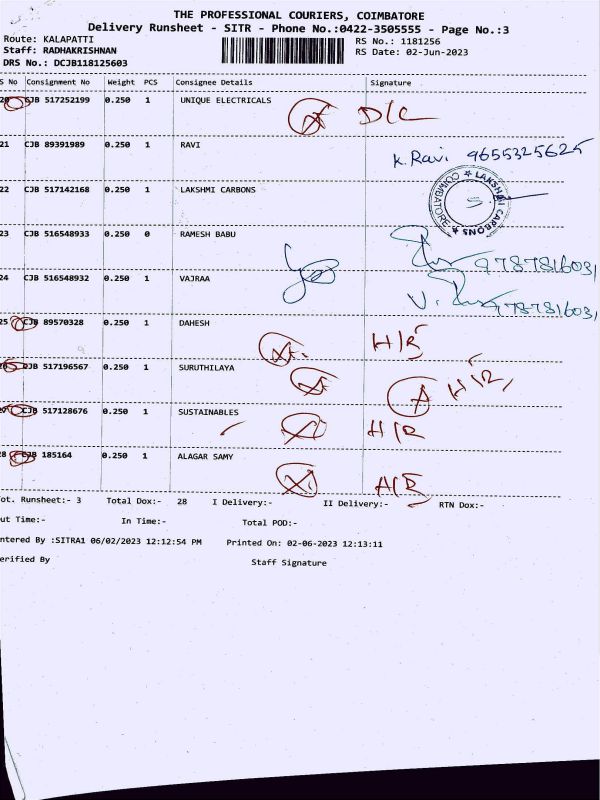 THE PROFESSIONAL COURIERS, COIMBATORE
Delivery Runsheet - SITR - Phone No.:0422-3505555 - Page No.:3
Route: KALAPATTI
RS No.: 1181256
Staff: RADHAKRISHNAN
RS Date: 02-Jun-2023
DRS No.: DCJB118125603
S No Consignment No Weight PCS Consignee Details Signature
20 CJB 517252199 0.250 1 UNIQUE ELECTRICALS D/C
21 CJB 89391989 0.250 1 RAVI K. Ravi 9655325625
22 CJB 517142168 0.250 1 LAKSHMI CARBONS LAKSHMI CARBONS COIMBATORE
23 CJB 516548933 0.250 0 RAMESH BABU 9787816031
24 CJB 516548932 0.250 1 VAJRAA V. 9787816031
25 CJB 89570328 0.250 1 DAHESH H/R
26 CJB 517196567 0.250 1 SURUTHILAYA H/R
27 CJB 517128676 0.250 1 SUSTAINABLES H/R
28 CJB 185164 0.250 1 ALAGAR SAMY
ot. Runsheet:- 3 Total Dox:- 28 I Delivery:- II Delivery:- RTN Dox:-
ut Time:- In Time:- Total POD:-
ntered By :SITRA1 06/02/2023 12:12:54 PM Printed On: 02-06-2023 12:13:11
erified By Staff Signature